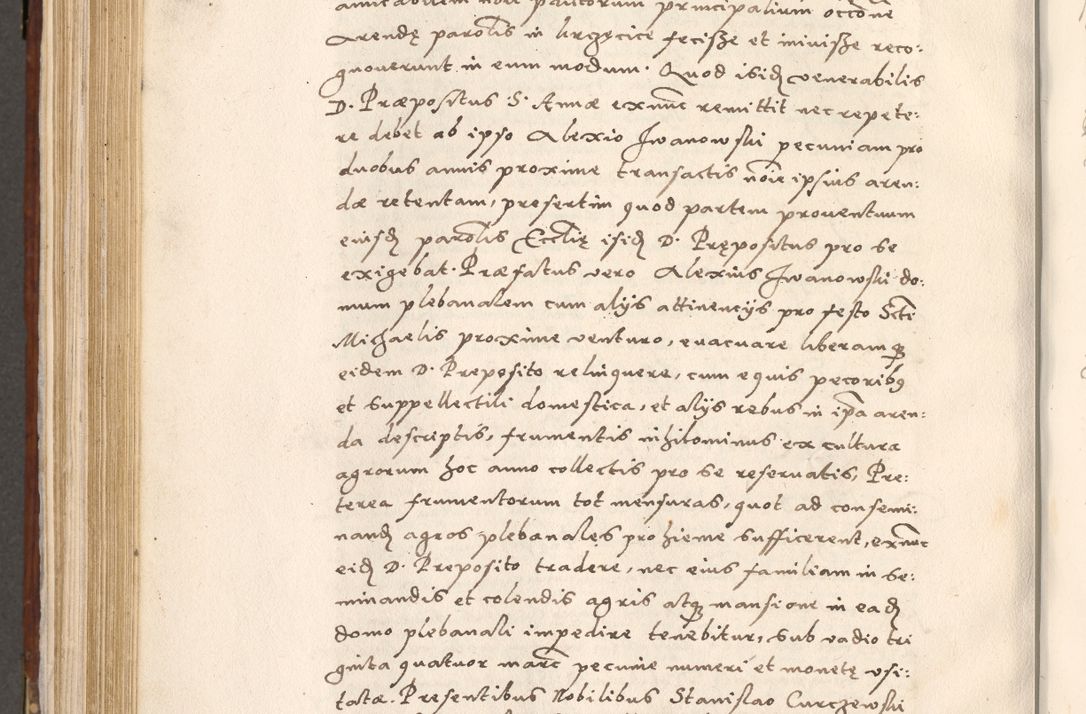 amicabilem non paucorum principalium occōne
Arendę parōlis in Krzęcice fecisße et iniuisße reco:
gnouerunt in eum modum. Quod isidꝫ venerabilis
D. Præpositus S. Annæ exnūc remittit nec repete:
re debet ab ipso Alexio Jwanowski pecuniam pro
duobus annis proxime transactis nōie ipsius aren:
dæ retentam, presertim quod partem prouentuum
eiusdꝫ parōlis Ecclię isidꝫ D. Prępositus pro se
exigebat. Præfatus vero Alexius Jwanowski do:
mum plebanalem cum alijs attinencijs pro festo Scti
Michaelis proxime venturo, euacuare liberamqꝫ
eidem D. Preposito relinquere, cum equis pecoribꝫ
et suppellectili domestica, et alijs rebus in ip̄a aren:
da descriptis, frumentis nihilominus ex cultura
agrorum hoc anno collectis pro se reseruatis, Pre:
terea frumentorum tot mensuras, quot ad consemi:
nandꝫ agros plebanales pro hieme sufficerent, exnūc
eidꝫ D. Preposito tradere, nec eius familiam in se:
minandis et colendis agris atqꝫ mansione in eadꝫ
domo plebanali impedire tenebitur, sub vadio tri
ginta quatuor marc̄ pecunie numeri et monetę vsi:
tatæ. Presentibus Nobilibus Stanislao Curczewski